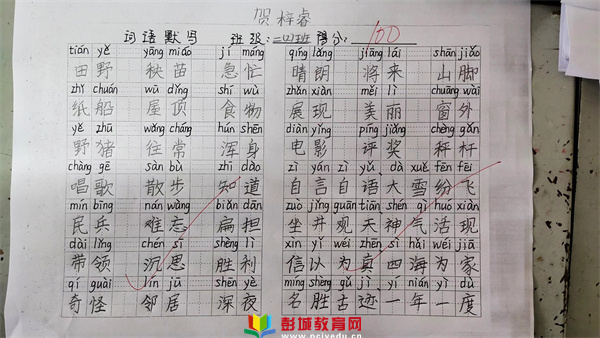 贺梓睿
词语默写 班级:二(4)班 得分: 100
tián yě yāng miáo jí máng qíng lǎng jiāng lái shān jiǎo
田野 秧苗 急忙 晴朗 将来 山脚
zhǐ chuán wū dǐng shí wù zhǎn xiàn měi lì chuāng wài
纸船 屋顶 食物 展现 美丽 窗外
yě zhū wǎng cháng hún shēn diàn yǐng píng jiǎng chèng gǎn
野猪 往常 浑身 电影 评奖 秤杆
chàng gē sàn bù zhī dào zì yán zì yǔ dà xuě fēn fēi
唱歌 散步 知道 自言自语 大雪纷飞
mín bīng nán wàng biǎn dan zuò jǐng guān tiān shén qì huó xiàn
民兵 难忘 扁担 坐井观天 神气活现
dài lǐng chén sī shèng lì xìn yǐ wéi zhēn sì hǎi wéi jiā
带领 沉思 胜利 信以为真 四海为家
qí guài lín jū shēn yè míng shèng gǔ jì yì nián yí dù
奇怪 邻居 深夜 名胜古迹 一年一度
彭城教育网